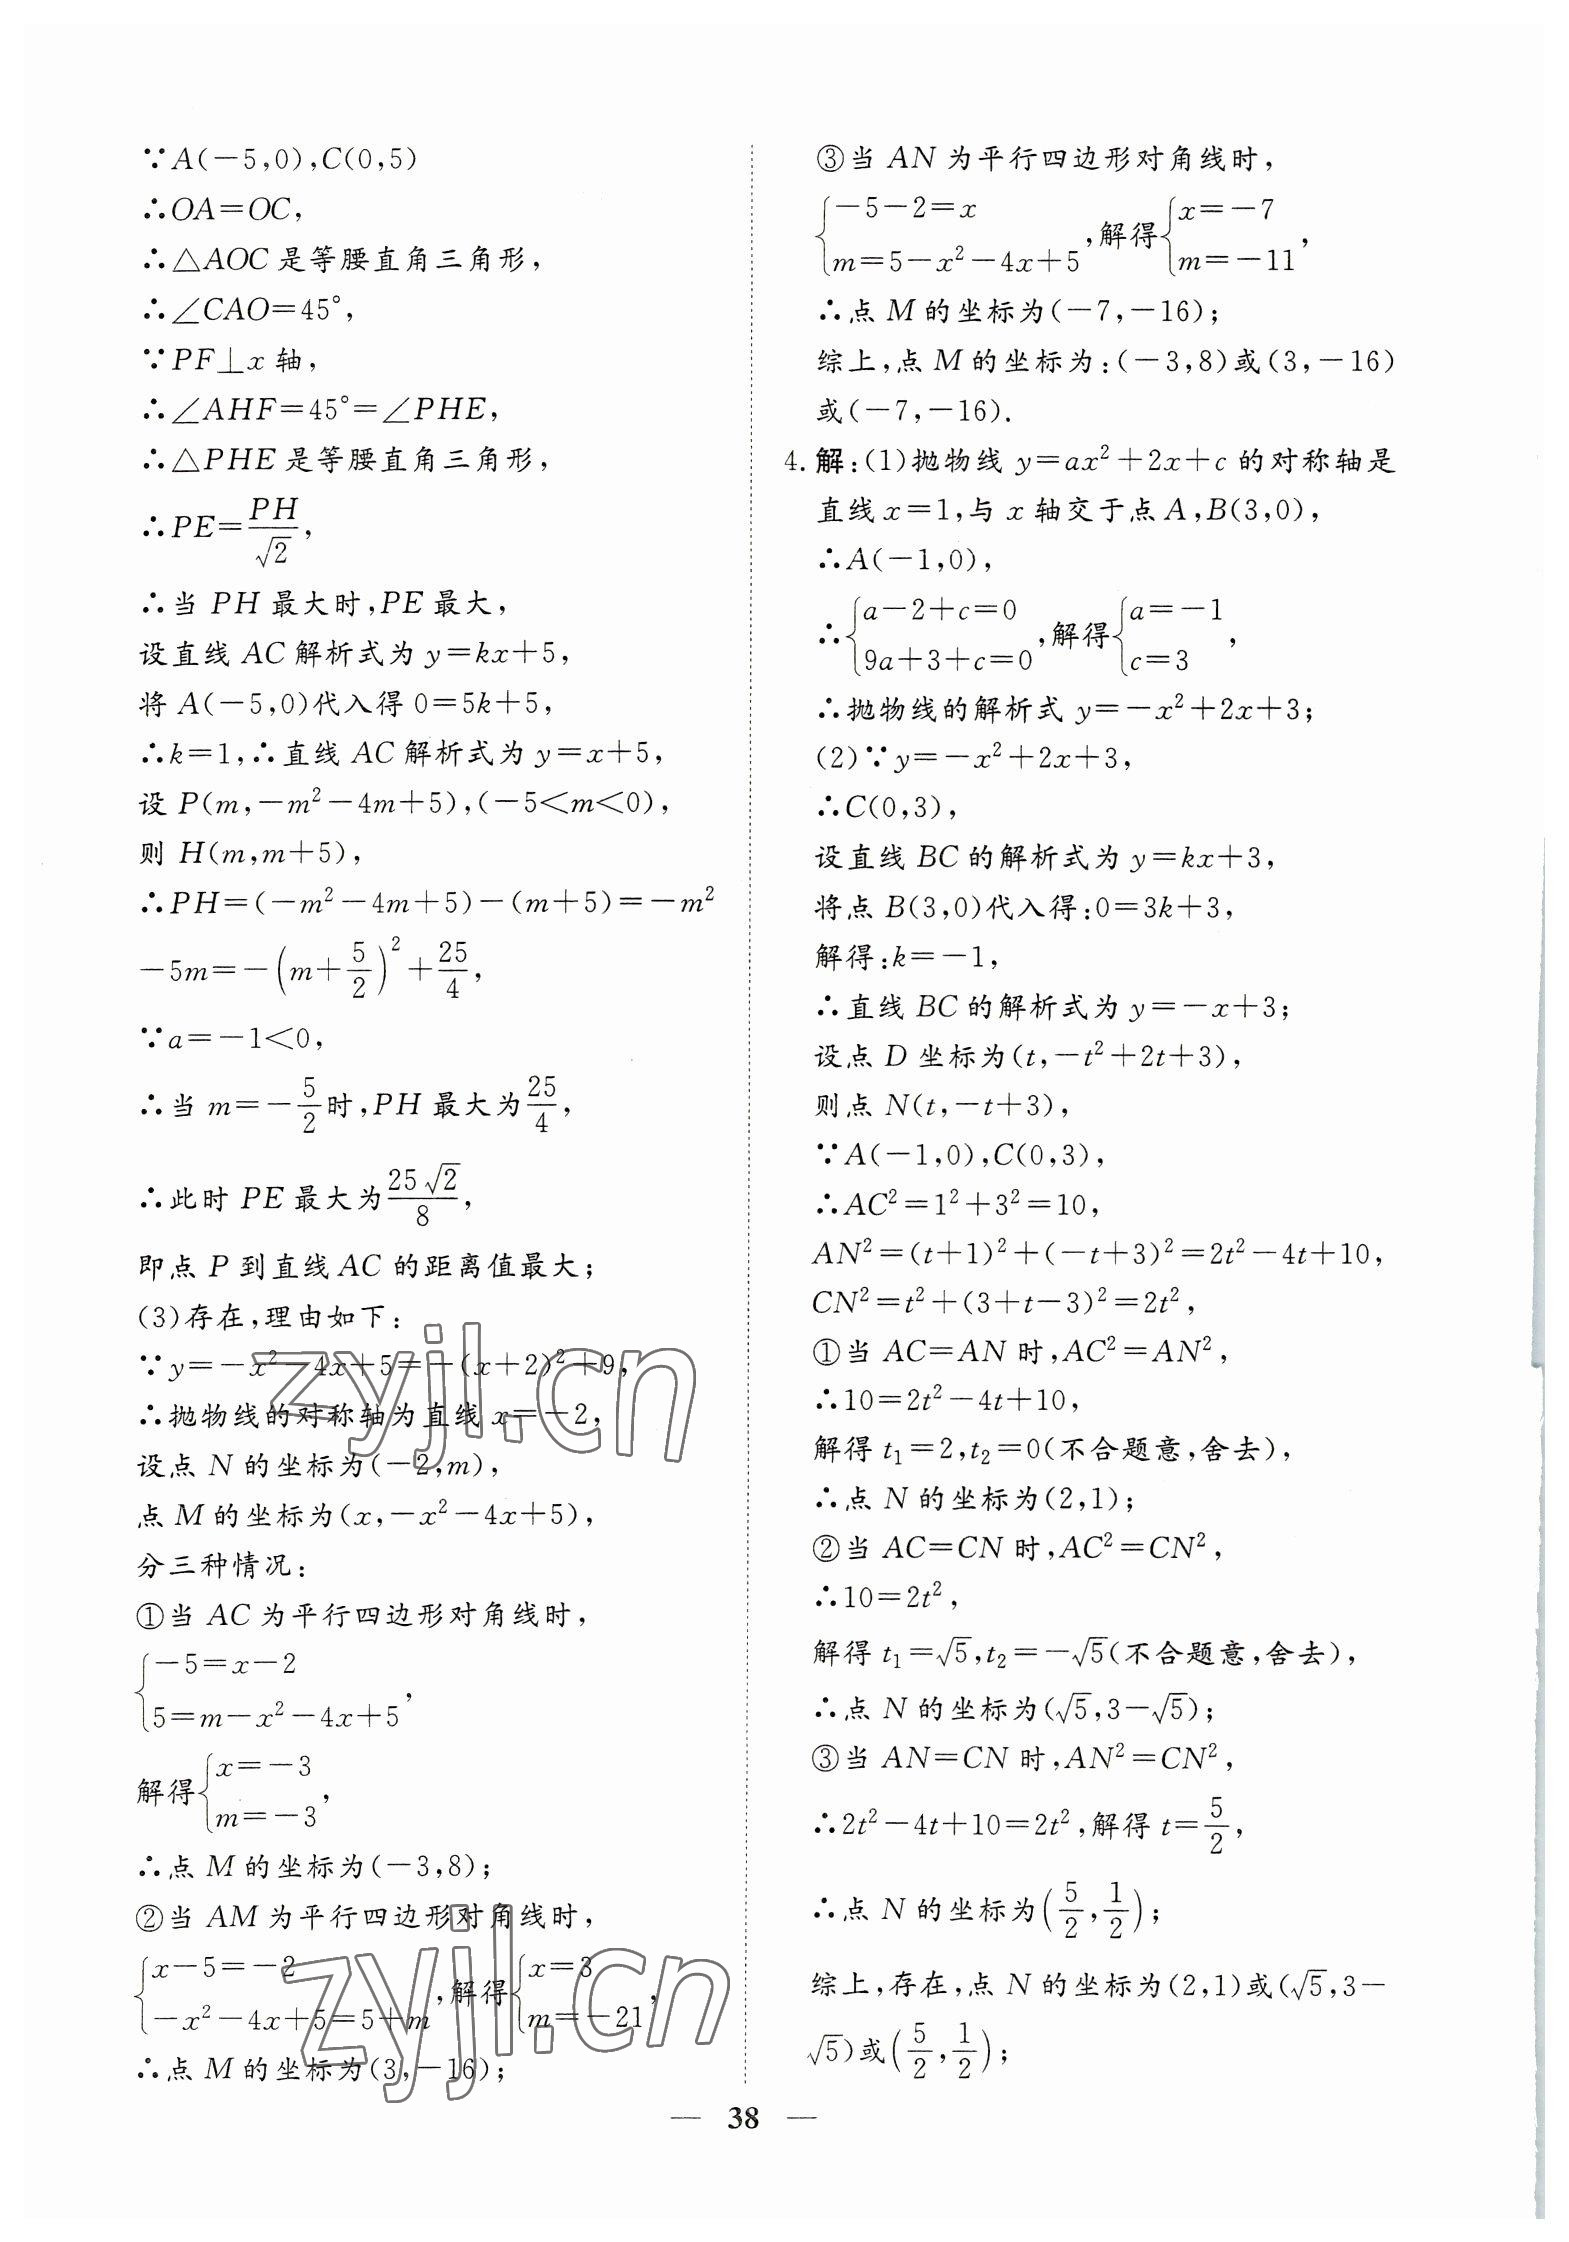 ∵A(－5,0),C(0,5)
∴OA＝OC,
∴△AOC 是等腰直角三角形,
∴∠CAO＝45°,
∵PF⊥x 轴,
∴∠AHF＝45°＝∠PHE,
∴△PHE 是等腰直角三角形,
∴PE＝PH/√2,
∴当 PH 最大时,PE 最大,
设直线 AC 解析式为 y＝kx＋5,
将 A(－5,0)代入得 0＝5k＋5,
∴k＝1,∴直线 AC 解析式为 y＝x＋5,
设 P(m,－m²－4m＋5),(－5＜m＜0),
则 H(m,m＋5),
∴PH＝(－m²－4m＋5)－(m＋5)＝－m²
－5m＝－(m＋5/2)²＋25/4,
∵a＝－1＜0,
∴当 m＝－5/2时,PH 最大为25/4,
∴此时 PE 最大为25√2/8,
即点 P 到直线 AC 的距离值最大;
(3)存在,理由如下:
∵y＝－x²－4x＋5＝－(x＋2)²＋9,
∴抛物线的对称轴为直线 x＝－2,
设点 N 的坐标为(－2,m),
点 M 的坐标为(x,－x²－4x＋5),
分三种情况:
①当 AC 为平行四边形对角线时,
{－5＝x－2
5＝m－x²－4x＋5,
解得{x＝－3
m＝－3,
∴点 M 的坐标为(－3,8);
②当 AM 为平行四边形对角线时,
{x－5＝－2
－x²－4x＋5＝5＋m,解得{x＝3
m＝－21,
∴点 M 的坐标为(3,－16);
③当 AN 为平行四边形对角线时,
{－5－2＝x
m＝5－x²－4x＋5,解得{x＝－7
m＝－11,
∴点 M 的坐标为(－7,－16);
综上,点 M 的坐标为:(－3,8)或(3,－16)
或(－7,－16).
4. 解:(1)抛物线 y＝ax²＋2x＋c 的对称轴是
直线 x＝1,与 x 轴交于点 A,B(3,0),
∴A(－1,0),
∴{a－2＋c＝0
9a＋3＋c＝0,解得{a＝－1
c＝3,
∴抛物线的解析式 y＝－x²＋2x＋3;
(2)∵y＝－x²＋2x＋3,
∴C(0,3),
设直线 BC 的解析式为 y＝kx＋3,
将点 B(3,0)代入得:0＝3k＋3,
解得:k＝－1,
∴直线 BC 的解析式为 y＝－x＋3;
设点 D 坐标为(t,－t²＋2t＋3),
则点 N(t,－t＋3),
∵A(－1,0),C(0,3),
∴AC²＝1²＋3²＝10,
AN²＝(t＋1)²＋(－t＋3)²＝2t²－4t＋10,
CN²＝t²＋(3＋t－3)²＝2t²,
①当 AC＝AN 时,AC²＝AN²,
∴10＝2t²－4t＋10,
解得 t₁＝2,t₂＝0(不合题意,舍去),
∴点 N 的坐标为(2,1);
②当 AC＝CN 时,AC²＝CN²,
∴10＝2t²,
解得 t₁＝√5,t₂＝－√5(不合题意,舍去),
∴点 N 的坐标为(√5,3－√5);
③当 AN＝CN 时,AN²＝CN²,
∴2t²－4t＋10＝2t²,解得 t＝5/2,
∴点 N 的坐标为(5/2,1/2);
综上,存在,点 N 的坐标为(2,1)或(√5,3－
√5)或(5/2,1/2);
— 38 —
zyjl.cn
zyjl.cn